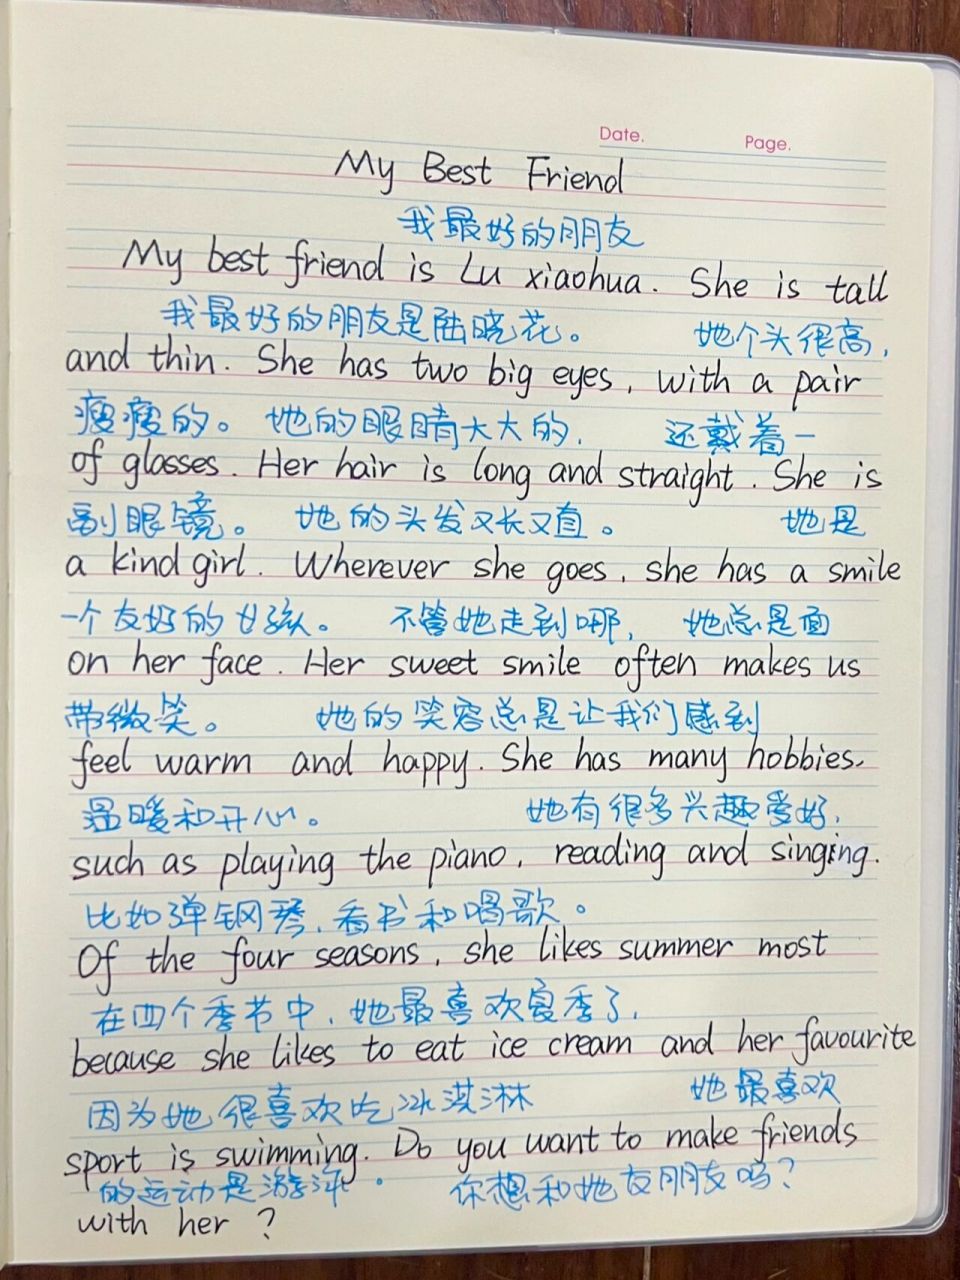 Date. Page.
My Best Friend
我最好的朋友
My best friend is Lu xiaohua. She is tall
我最好的朋友是陆晓花。 她个头很高,
and thin. She has two big eyes, with a pair
瘦瘦的。 她的眼睛大大的, 还戴着一
of glasses. Her hair is long and straight. She is
副眼镜。 她的头发又长又直。 她是
a kind girl. Wherever she goes, she has a smile
一个友好的女孩。 不管她走到哪, 她总是面
on her face. Her sweet smile often makes us
带微笑。 她的笑容总是让我们感到
feel warm and happy. She has many hobbies,
温暖和开心。 她有很多兴趣爱好,
such as playing the piano, reading and singing.
比如弹钢琴,看书和唱歌。
Of the four seasons, she likes summer most
在四个季节中,她最喜欢夏季了,
because she likes to eat ice cream and her favourite
因为她很喜欢吃冰淇淋 她最喜欢
sport is swimming. Do you want to make friends
的运动是游泳。 你想和她友朋友吗?
with her ?